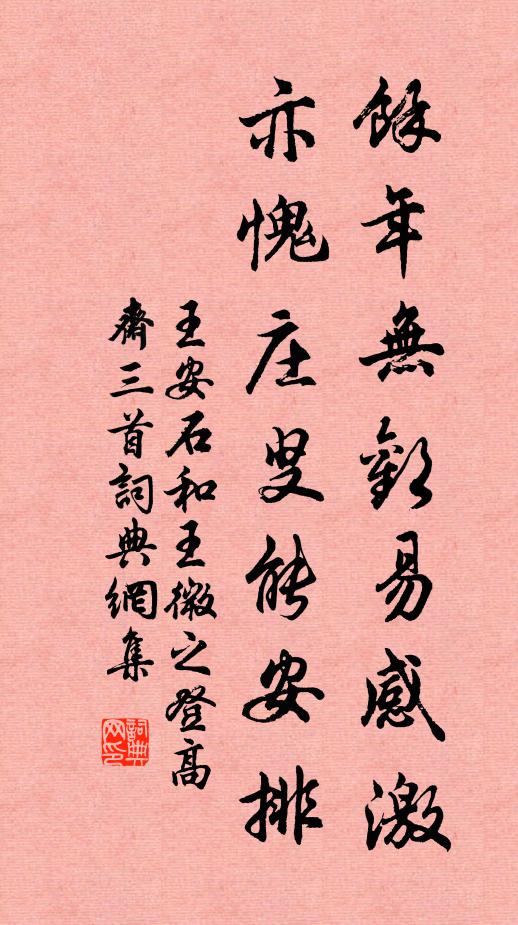 餘年無歡易感激
亦愧庄叟能安排
王安石和王微之登高
齋三首詞典網集
詞典網印